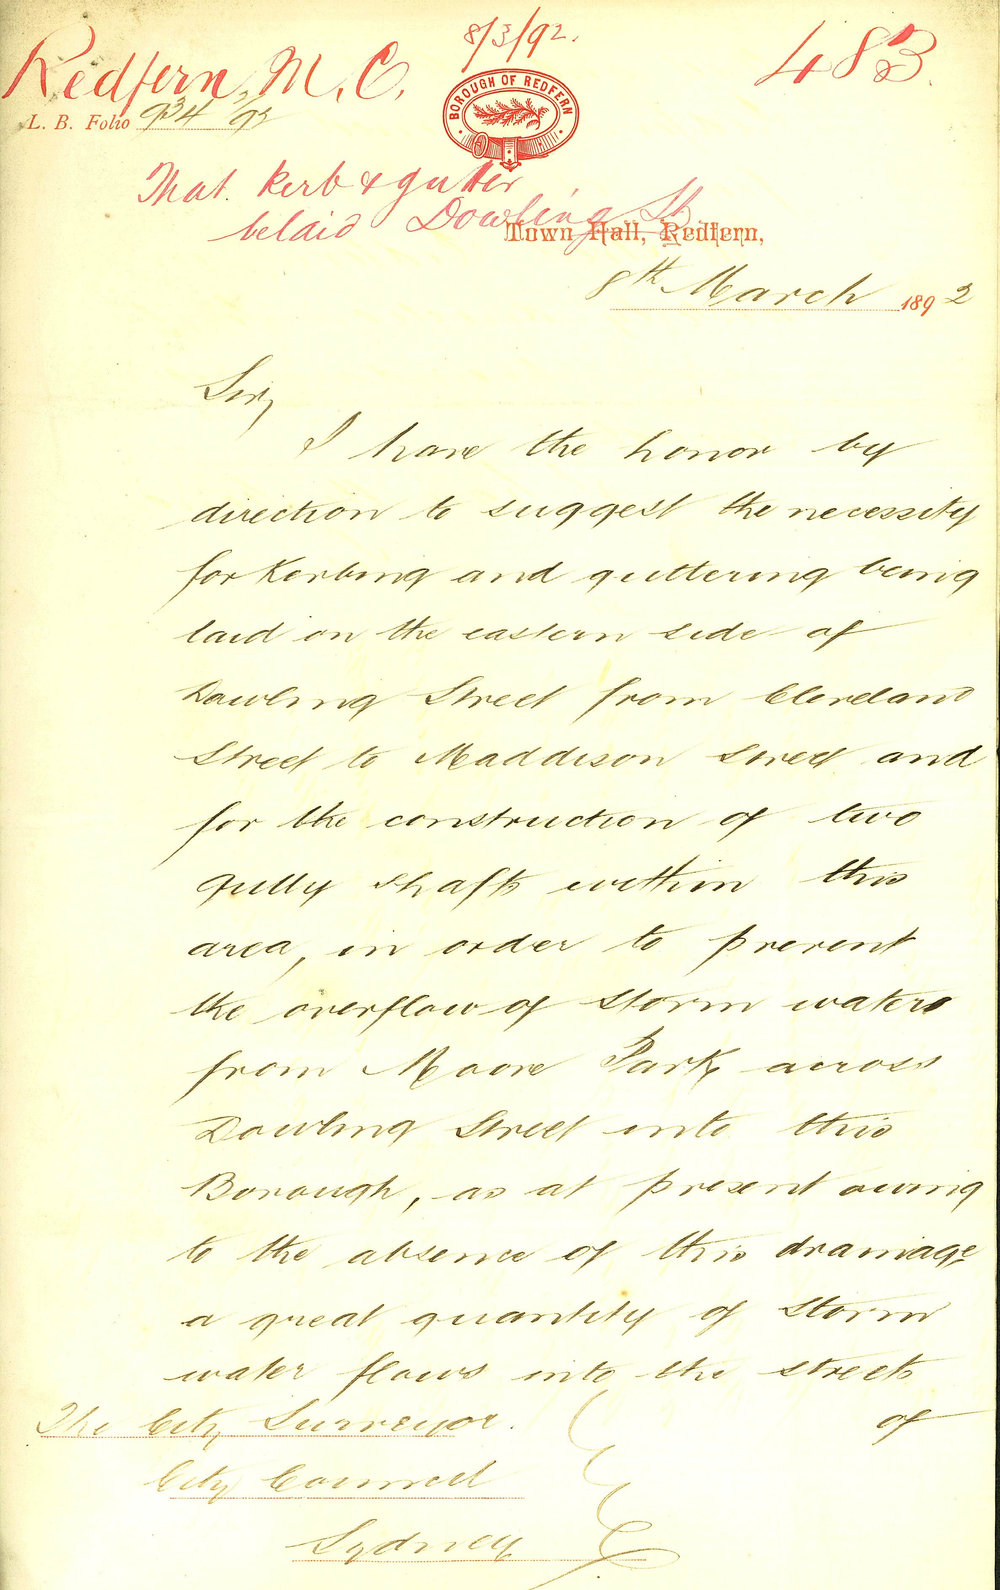 8/3/92.
Redfern, M. C.
483.
BOROUGH OF REDFERN
L. B. Folio 934/93
That kerb & gutter
be laid Dowling St
Town Hall, Redfern,
8th March 1892
Sir,
I have the honor by
direction to suggest the necessity
for Kerbing and guttering being
laid on the eastern side of
Dowling Street from Cleveland
Street to Maddison Street and
for the construction of two
gully shafts within this
area, in order to prevent
the overflow of storm waters
from Moore Park across
Dowling Street into this
Borough, as at present owing
to the absence of this drainage
a great quantity of storm
water flows into the streets
of
The City Surveyor.
City Council
Sydney